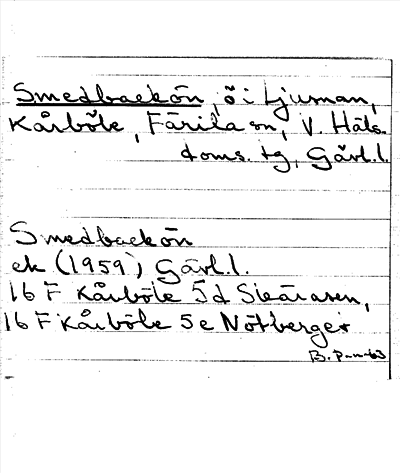 Smedbackön, ö i Ljusnan,
Kårböle, Färila sn, V. Häls.
doms. tg, Gävl.l.
Smedbackön
ek (1959) Gävl.l.
16 F Kårböle 5d Skärasen,
16 F Kårböle 5e Nötberget